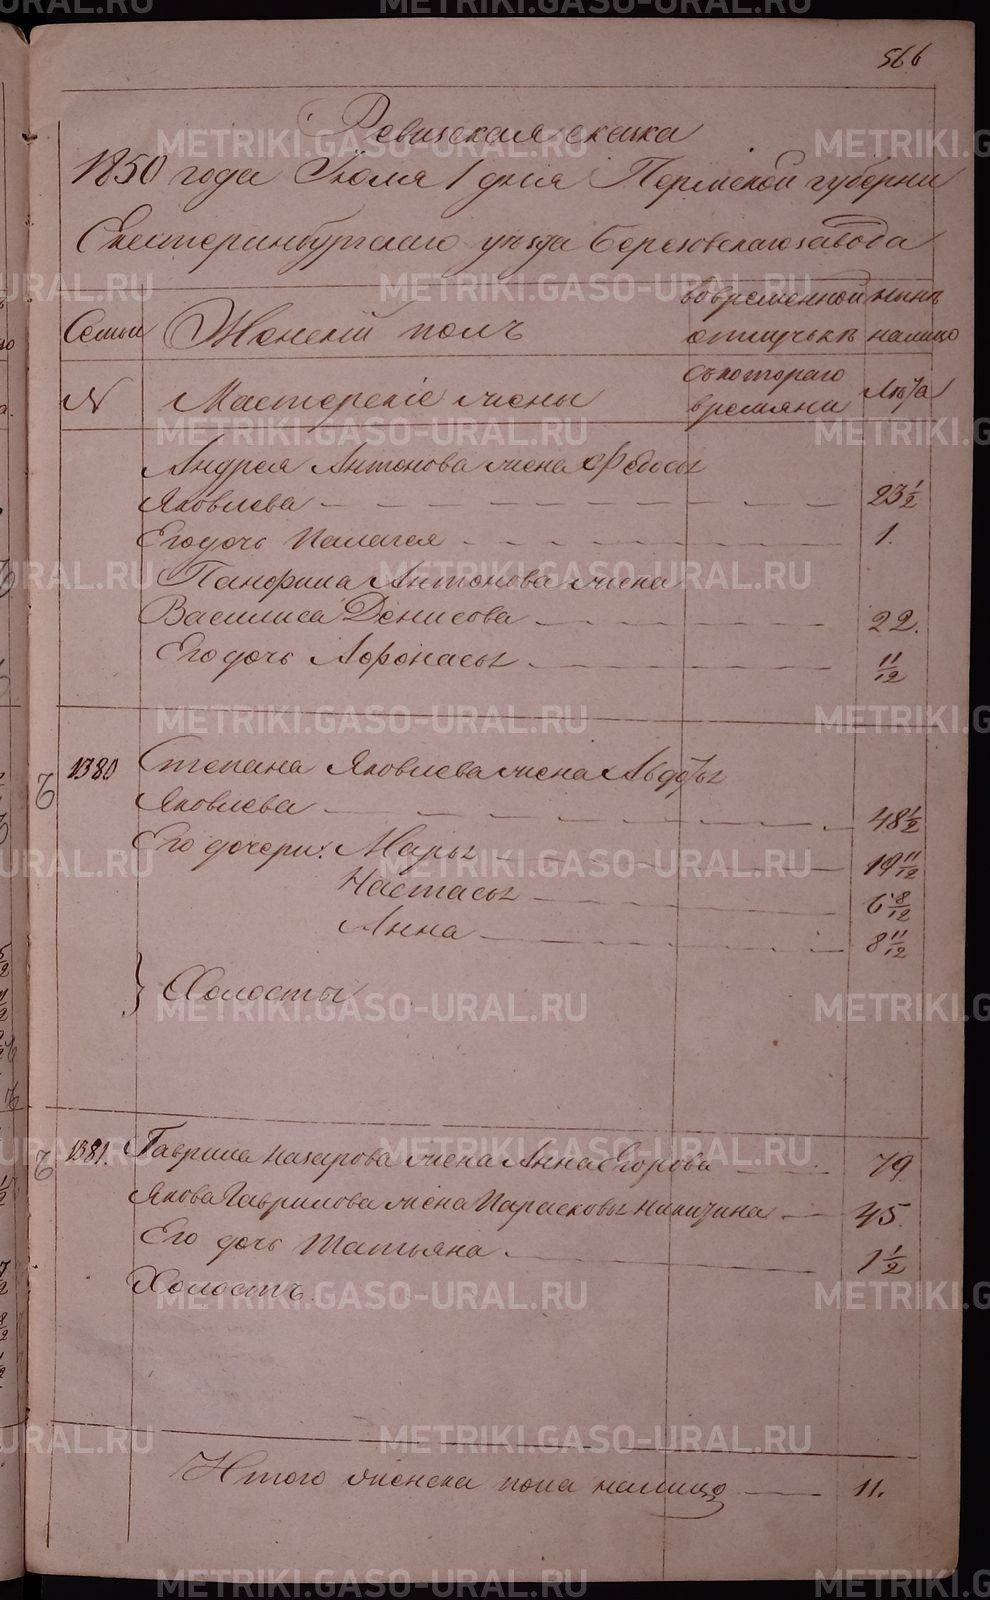 566
Ревизская сказка
1850 года Июля 1 дня Пермской губернии
Екатеринбургскаго уезда Березовскаго завода
Семьи
Женскiй полъ
во временной
отлучькъ
ныне
налицо
№
Мастерскiе жены
съ котораго
времяни
Лѣта
Андрея Антонова жена Федосья
Яковлева 23 1/2
Его дочь Палагея 1.
Панфила Антонова жена
Василиса Денисова 22.
Его дочь Афонасья 11/12
1380 Степана Яковлева жена Авдотья
Яковлева 48 1/2
Его дочери: Марья 19 11/12
Настасья 6 8/12
Анна 8 11/12
} Холосты
1381. Гаврила Назарова жена Анна Егорова 79
Якова Гаврилова жена Парасковья Никитина 45.
Его дочь Татьяна 1 1/2
Холостъ
Итого женска пола налицо 11.
METRIKI.GASO-URAL.RU